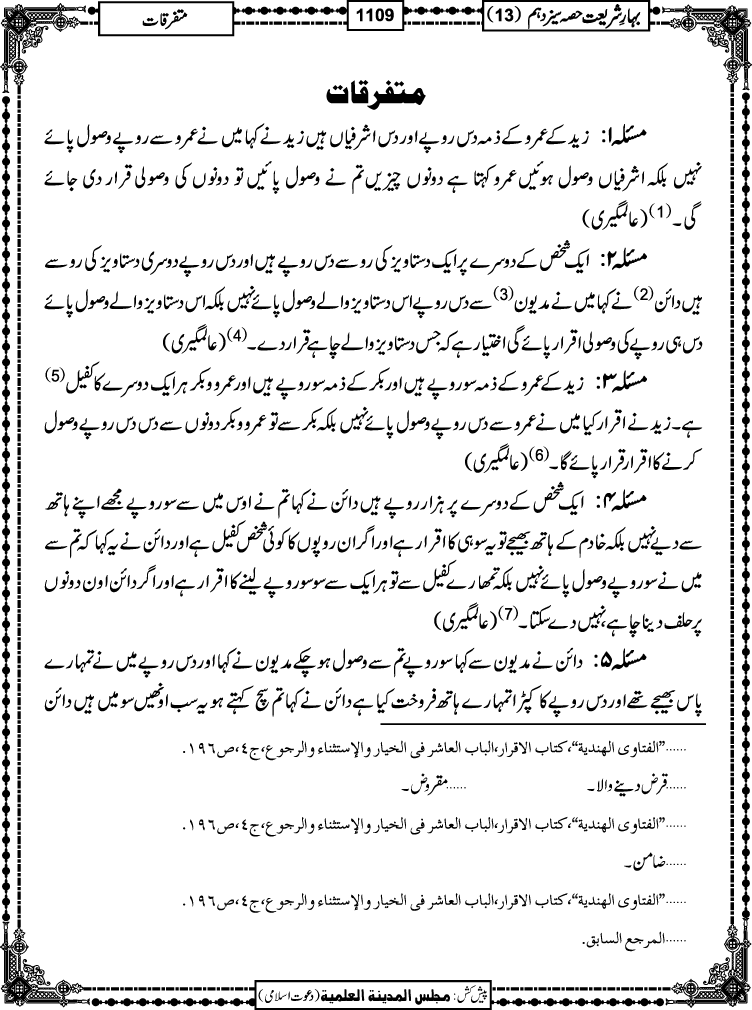 بہارِ شریعت حصہ سیزدہم (13)
1109
متفرقات
متفرقات
مسئلہ ۱: زید کے عمرو کے ذمہ دس روپے اور دس اشرفیاں ہیں زید نے کہا میں نے عمرو سے روپے وصول پائے
نہیں بلکہ اشرفیاں وصول ہوئیں عمرو کہتا ہے دونوں چیزیں تم نے وصول پائیں تو دونوں کی وصولی قرار دی جائے
گی۔(1) (عالمگیری)
مسئلہ ۲: ایک شخص کے دوسرے پر ایک دستاویز کی رو سے دس روپے ہیں اور دس روپے دوسری دستاویز کی رو سے
ہیں دائن(2) نے کہا میں نے مدیون(3) سے دس روپے اس دستاویز والے وصول پائے نہیں بلکہ اس دستاویز والے وصول پائے
دس ہی روپے کی وصولی اقرار پائے گی اختیار ہے کہ جس دستاویز والے چاہے قرار دے۔(4) (عالمگیری)
مسئلہ ۳: زید کے عمرو کے ذمہ سو روپے ہیں اور بکر کے ذمہ سو روپے ہیں اور عمرو و بکر ہر ایک دوسرے کا کفیل(5)
ہے۔ زید نے اقرار کیا میں نے عمرو سے دس روپے وصول پائے نہیں بلکہ بکر سے تو عمرو و بکر دونوں سے دس دس روپے وصول
کرنے کا اقرار قرار پائے گا۔(6) (عالمگیری)
مسئلہ ۴: ایک شخص کے دوسرے پر ہزار روپے ہیں دائن نے کہا تم نے اوس میں سے سو روپے مجھے اپنے ہاتھ
سے دیے نہیں بلکہ خادم کے ہاتھ بھیجے تو یہ سو ہی کا اقرار ہے اور اگر ان روپوں کا کوئی شخص کفیل ہے اور دائن نے یہ کہا کہ تم سے
میں نے سو روپے وصول پائے نہیں بلکہ تمھارے کفیل سے تو ہر ایک سے سو سو روپے لینے کا اقرار ہے اور اگر دائن اون دونوں
پر حلف دینا چاہے، نہیں دے سکتا۔(7) (عالمگیری)
مسئلہ ۵: دائن نے مدیون سے کہا سو روپے تم سے وصول ہو چکے مدیون نے کہا اور دس روپے میں نے تمہارے
پاس بھیجے تھے اور دس روپے کا کپڑا تمہارے ہاتھ فروخت کیا ہے دائن نے کہا تم سچ کہتے ہو یہ سب اونھیں سو میں ہیں دائن
......"الفتاوى الهندية"، كتاب الاقرار، الباب العاشر في الخيار والإستثناء والرجوع، ج٤، ص١٩٦.
......قرض دینے والا۔ ......مقروض۔
......"الفتاوى الهندية"، كتاب الاقرار، الباب العاشر في الخيار والإستثناء والرجوع، ج٤، ص١٩٦.
......ضامن۔
......"الفتاوى الهندية"، كتاب الاقرار، الباب العاشر في الخيار والإستثناء والرجوع، ج٤، ص١٩٦.
......المرجع السابق.
پیش کش: مجلس المدینة العلمیة (دعوت اسلامی)